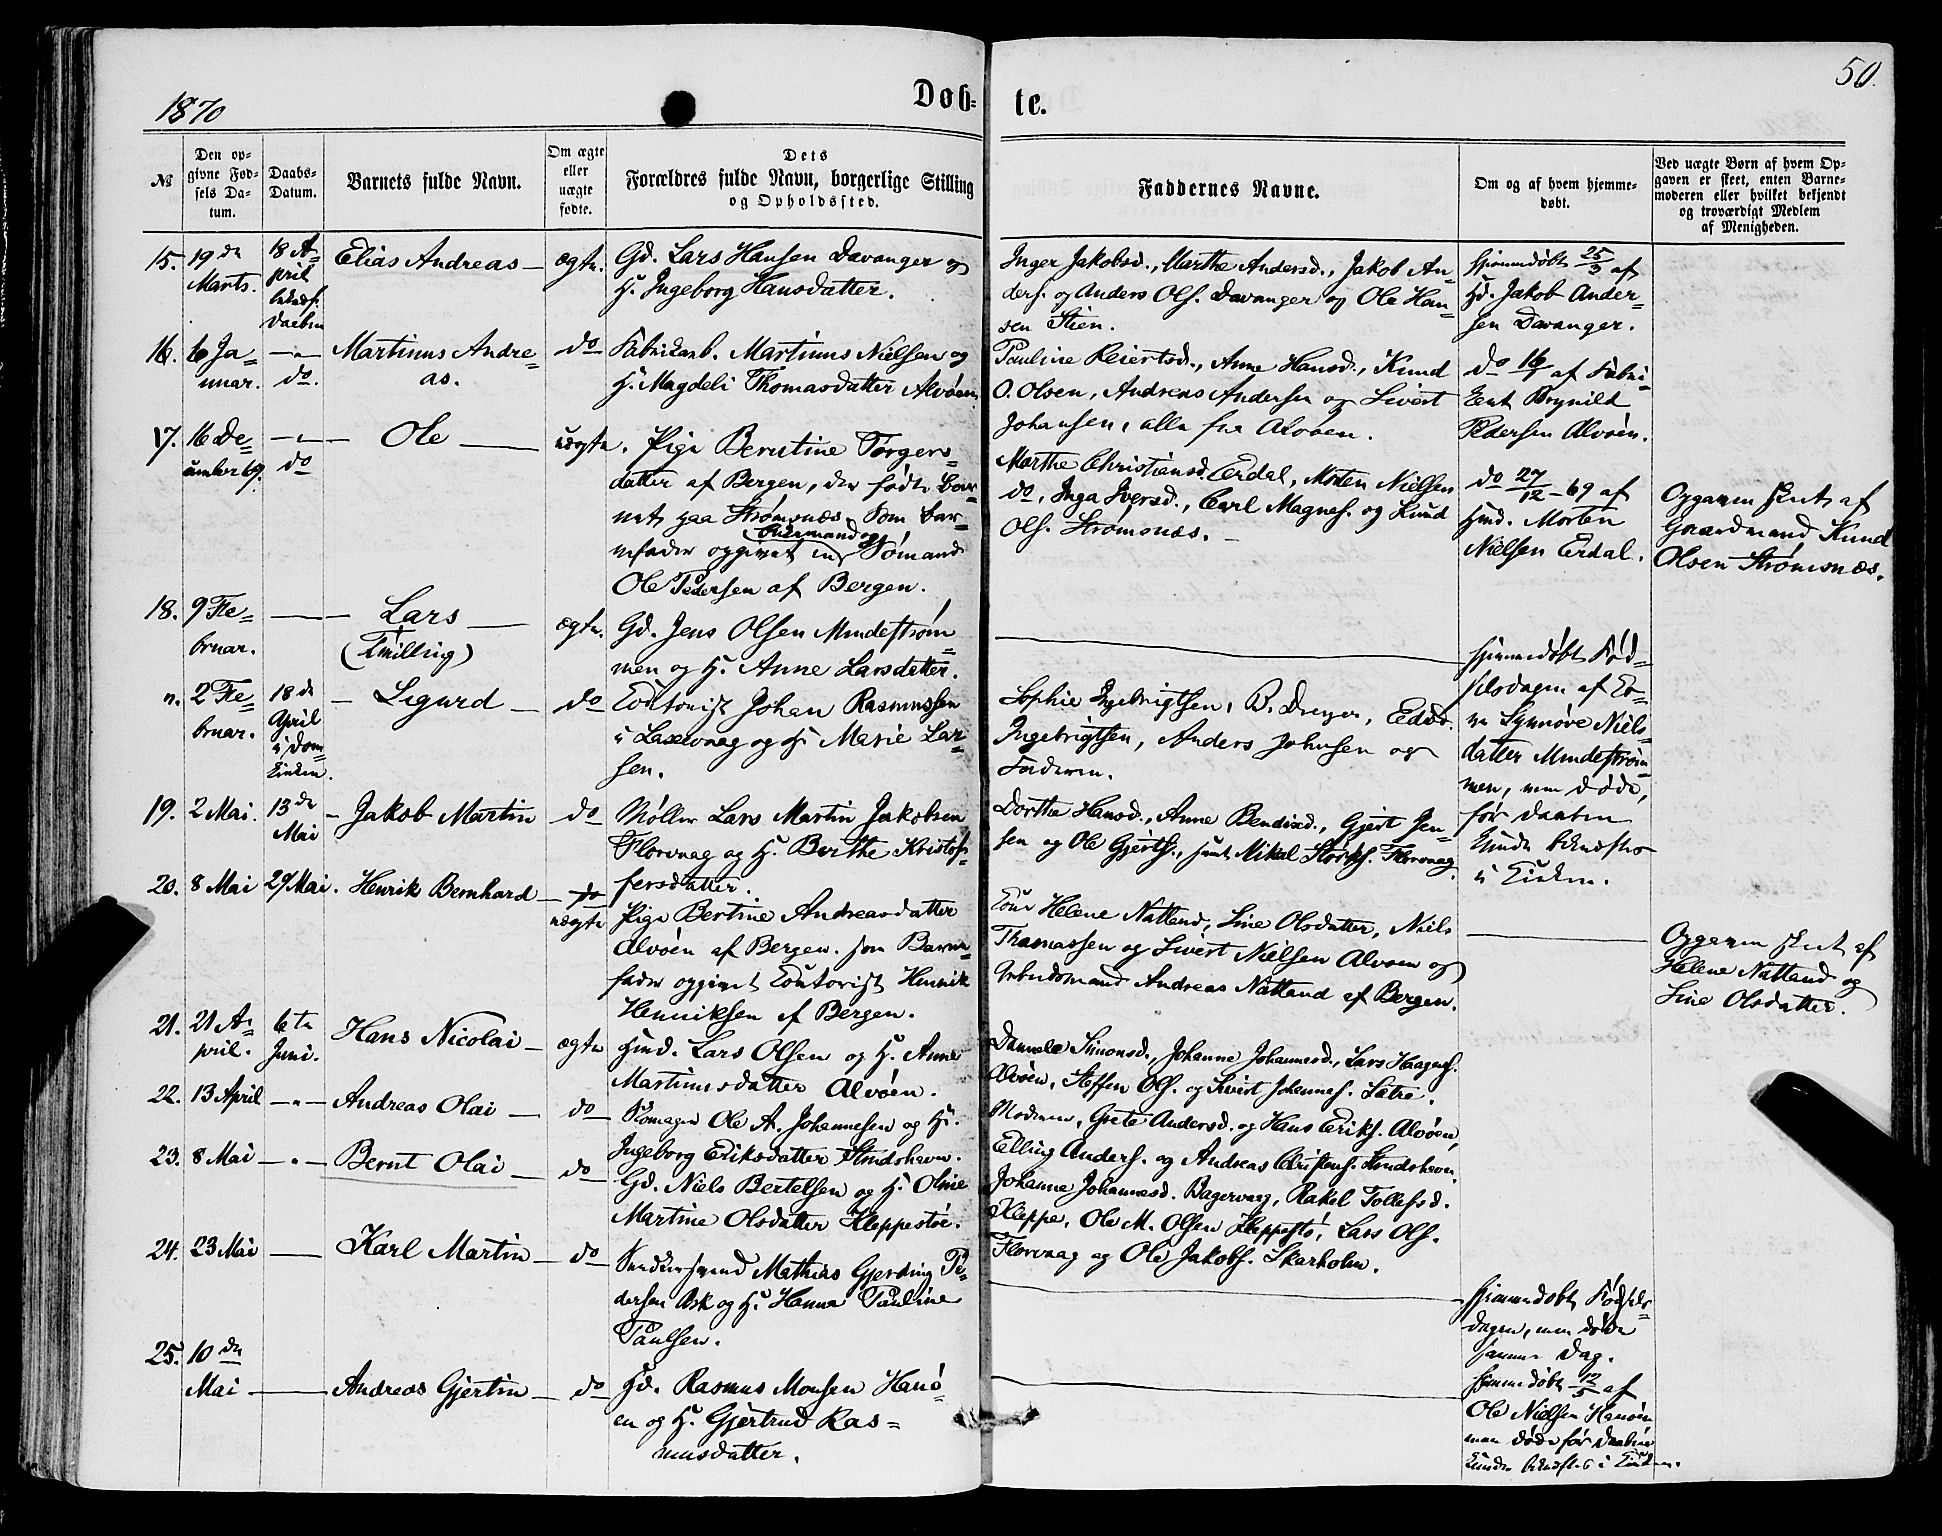 50.
1870
Døb-
te.
№
Den op-
givne Fød-
sels Da-
tum.
Daabs-
Datum.
Barnets fulde Navn.
Om ægte
eller
uægte
fødte.
Dets
Forældres fulde Navn, borgerlige Stilling
og Opholdssted.
Faddernes Navne.
Om og af hvem hjemme-
døbt.
Ved uægte Børn af hvem Op-
gaven er skeet, enten Barne-
moderen eller hvilket bekjendt
og troværdigt Medlem
af Menigheden.
15.
19de
Marts.
18 A-
pril
Daaben
Elias Andreas
ægte.
Gd. Lars Hansen Davanger og
H. Ingeborg Hansdatter.
Inger Jakobsd., Marthe Andersd., Jakob An-
ders. og Anders Ols. Davanger og Ole Han-
sen Stien.
Hjemmedøbt 25/3 af
Gd. Jakob Ander-
sen Davanger.
16.
6 Ja-
nuar.
do.
Martinus Andre-
as.
do
Fabrikarb. Martinus Nielsen og
H. Magdeli Thomasdatter Alvøen.
Pauline Reiertsd., Anne Hansd., Knud
O. Olsen, Andreas Andersen og Sivert
Johansen, alle fra Alvøen.
do 16/1 af Fabri-
Brynild
Pedersen Alvøen.
17.
16 De-
cember 69.
do
Ole
uægte.
Pige Berntine Torgers-
datter af Bergen, der fødte Bar-
net paa Strømsnæs. Som Bar-
nefader opgivet Sømand
Ole Pedersen af Bergen.
Marthe Christensd. Erdal, Morten Nielsen
do, Inga Iversd., Carl Magnes. og Knud
Ols. Strømsnæs.
do 27/12 - 69 af
Hmd. Morten
Nielsen Erdal.
Opgaven skeet af
Gaardmand Knud
Olsen Strømsnæs.
18.
9 Fe-
bruar.
Lars
(Tvilling)
ægte.
Gd. Jens Olsen Mindestrøm-
men og H. Anne Larsdatter.
Hjemmedøbt Fød-
selsdagen af En-
ke Synnøve Niels-
datter Mindestrøm-
men, men døde,
før Daaben
kunde bekræftes
i Kirken.
n.
2 Fe-
bruar.
18de
April
i Dom-
kirken.
Sigurd
do
Contorist Johan Rasmussen
i Laxevaag og H. Marie Lar-
sen.
Sophie Ingebrigtsen, B. Dreyer, Edvd.
Ingebrigtsen, Anders Johnsen og
Faderen.
19.
2 Mai.
13de
Mai
Jakob Martin
do
Møller Lars Martin Jakobsen
Florvaag og H. Berthe Kristof-
fersdatter.
Dorthe Hansd., Anne Bendixd., Gjert Jen-
sen og Ole Gjerts., samt Mikal Florvaag.
20.
8 Mai
29 Mai.
Henrik Bernhard
do
uægte
Pige Bertine Andreasdatter
Alvøen af Bergen. Som Barne-
fader opgivet Contorist Henrik
Henriksen af Bergen.
Kone Helene Natland, Sine Olsdatter, Niels
Thomassen og Sivert Nielsen Alvøen og
Arbeidsmand Andreas Natland af Bergen.
Opgaven skeet af
Helene Natland og
Sine Olsdatter.
21.
21 A-
pril.
6te
Juni.
Hans Nicolai
ægte
Hmd. Lars Olsen og H. Anne
Martinusdatter Alvøen.
Simonsd., Johanne Johannesd., Lars Haagns.
Alvøen, Steffen Ols. og Sivert Johannes. Sætre.
22.
13 April
Andreas Olai
do
Skomager Ole A. Johannesen og H.
Ingeborg Eriksdatter
Moderen, Grete Andersd. og Hans Eriks. Alvøen,
Elling Anders. og Andreas Christens.
23.
8 Mai
Bernt Olai
do
Gd. Niels Bertelsen og H. Oline
Martine Olsdatter Kleppestøe.
Johanne Johannesd. Bagervaag, Rakel Tollefsd.
Kleppe, Ole M. Olsen Kleppestø, Lars Ols.
Florvaag og Ole Jakobs. Skarholm.
24.
23 Mai
Karl Martin
do
Mathias Gjerding Pe-
dersen Ask og H. Hanna Pauline
Paulsen.
Hjemmedøbt Fødsels-
dagen, men døde
samme Dag.
25.
10de
Mai
Andreas Gjertin
do
Gd. Rasmus Monsen Hanø-
en og H. Gjertrud Ras-
musdatter.
Hjemmedøbt 12/5 af
Ole Nielsen Hanøen
men døde før Daaben
kunde bekræftes i Kirken.